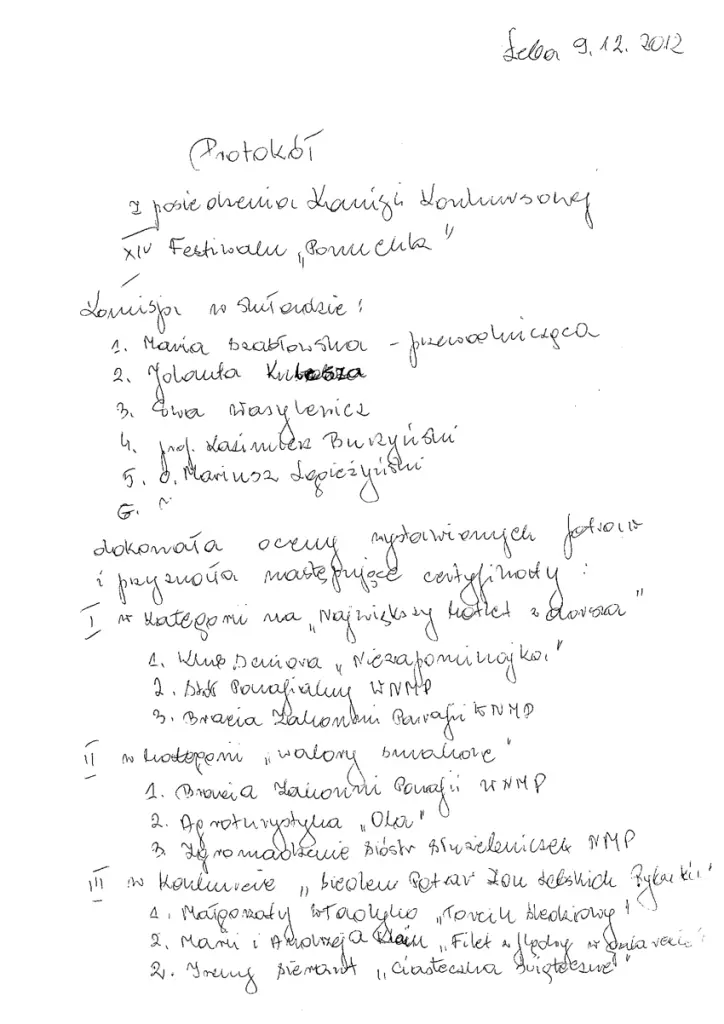 Łeba 9.12.2012
Protokół
z posiedzenia Komisji Konkursowej
XIV Festiwalu „Pomuchla"
Komisja w składzie:
1. Maria Szabłowska - przewodnicząca
2. Jolanta
3. Ewa Wasylewicz
4. prof. Kazimierz Burzyński
5. O. Mariusz Legieżyński
6.
dokonała oceny wystawionych potraw
i przyznała następujące certyfikaty:
I w kategorii na „Największy kotlet z dorsza"
1. Klub Seniora „Niezapominajka"
2. Parafialny WNMP
3. Bracia Zakonni Parafii WNMP
II w kategorii „walory smakowe"
1. Bracia Zakonni Parafii WNMP
2. Agroturystyka „Ola"
3. Zgromadzenie Sióstr Służebniczek NMP
III w konkursie „Siedem Potraw Żon Łebskich Rybaków"
1. Małgorzaty „Torcik śledziowy"
2. Marii i Andrzeja „Filet z
2. Ireny „Ciasteczka świąteczne"